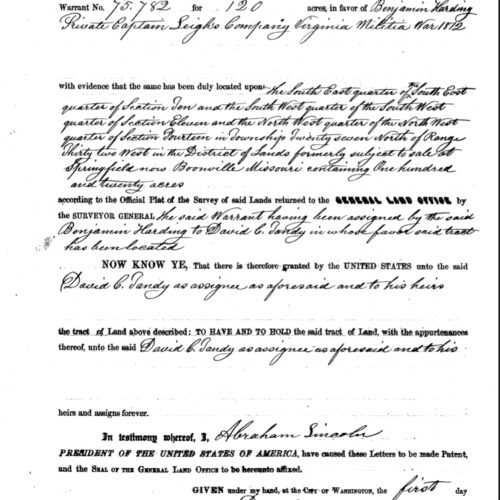 Warrant No. 75.782 for 120 acres, in favor of Benjamin Harding
Private Captain Leigh's Company Virginia Militia War 1812
with evidence that the same has been duly located upon the South East quarter of the South East
quarter of Section Ten and the South West quarter of the South West
quarter of Section Eleven and the North West quarter of the North West
quarter of Section Fourteen in Township Twenty seven North of Range
Thirty two West in the District of Lands formerly subject to sale at
Springfield now Boonville Missouri containing One hundred
and twenty acres
according to the Official Plat of the Survey of said Lands returned to the GENERAL LAND OFFICE by
the SURVEYOR GENERAL the said Warrant having been assigned by the said
Benjamin Harding to David C. Tandy in whose favor said tract
has been located
NOW KNOW YE, That there is therefore granted by the UNITED STATES unto the said
David C. Tandy as assignee as aforesaid and to his heirs
the tract of Land above described: TO HAVE AND TO HOLD the said tract of Land, with the appurtenances
thereof, unto the said David C. Tandy as assignee as aforesaid and to his
heirs and assigns forever.
In testimony whereof, I, Abraham Lincoln
PRESIDENT OF THE UNITED STATES OF AMERICA, have caused these Letters to be made Patent,
and the SEAL of the GENERAL LAND OFFICE to be hereunto affixed.
GIVEN under my hand, at the CITY OF WASHINGTON, the first day